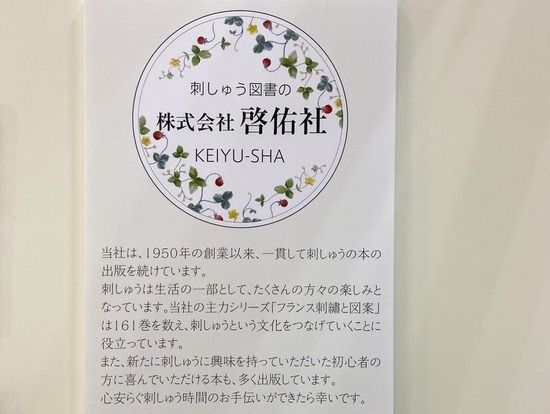 刺しゅう図書の
株式会社 啓佑社
KEIYU-SHA
当社は、1950年の創業以来、一貫して刺しゅうの本の
出版を続けています。
刺しゅうは生活の一部として、たくさんの方々の楽しみと
なっています。当社の主力シリーズ「フランス刺繍と図案」
は161巻を数え、刺しゅうという文化をつなげていくことに
役立っています。
また、新たに刺しゅうに興味を持っていただいた初心者の
方に喜んでいただける本も、多く出版しています。
心安らぐ刺しゅう時間のお手伝いができたら幸いです。